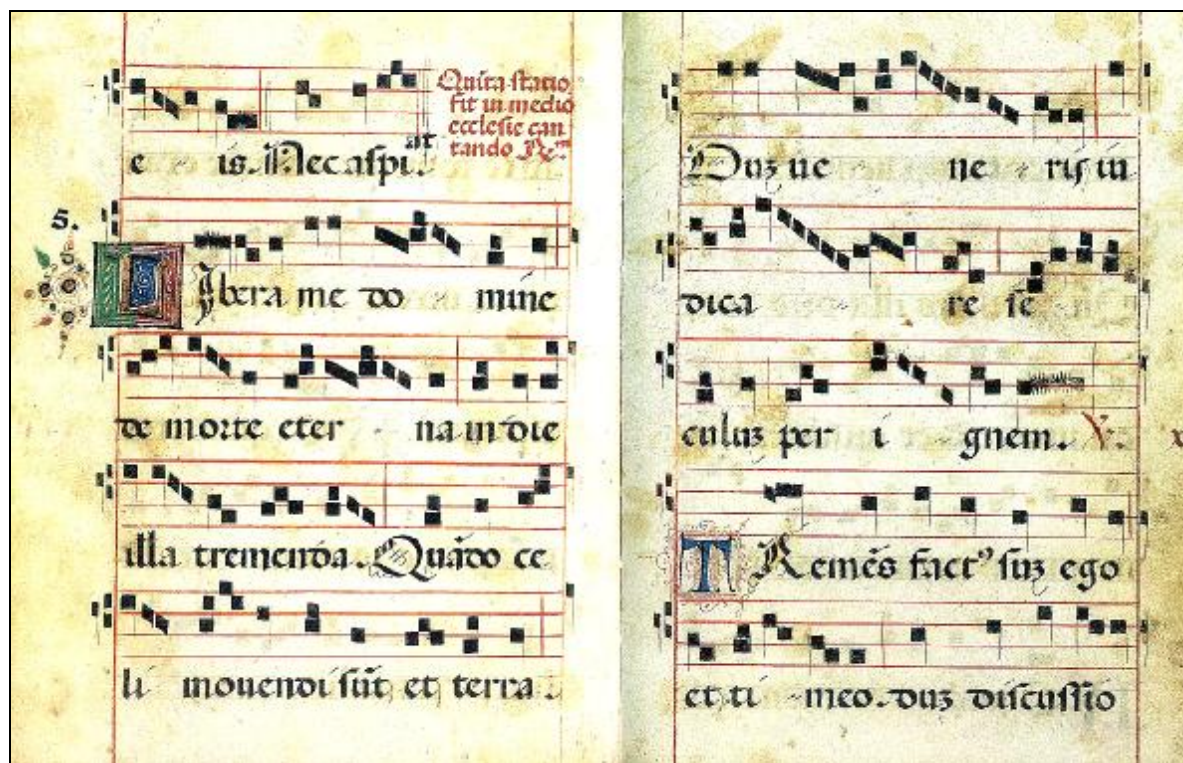 e is. ℟. Nec aspi. at
Quinta statio
fit in medio
ecclesie can
tando ℞.m
5.
Libera me do mine
de morte eter na in die
illa tremenda. Quãdo ce
li mouendi sũt et terra.
Duz ue ne ris iu
dica re se
culuz per i gnem. V. x
TRemẽs fact⁹ suz ego
et ti meo. duz discussio